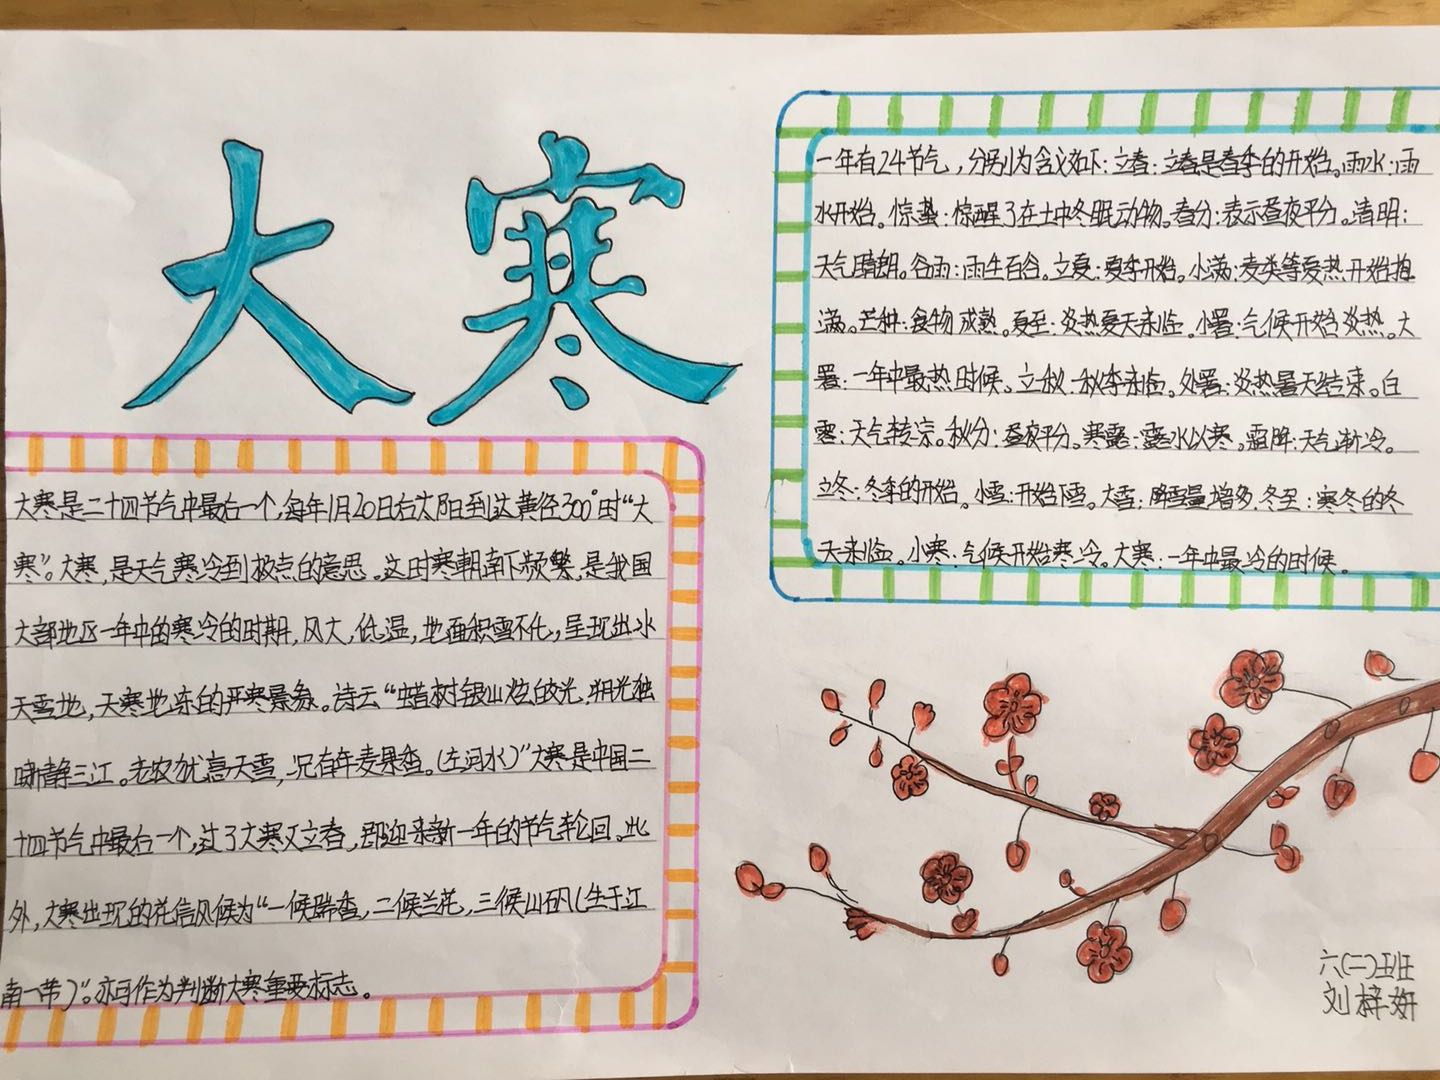 大寒
一年有24节气，分别为含义如下：立春：立春是春季的开始。雨水：雨
水开始。惊蛰：惊醒了在土中冬眠动物。春分：表示昼夜平分。清明：
天气晴朗。谷雨：雨生百谷。立夏：夏季开始。小满：麦类等夏热开始抱
满。芒种：食物成熟。夏至：炎热夏天来临。小暑：气候开始炎热。大
暑：一年中最热时候。立秋：秋季来临。处暑：炎热暑天结束。白
露：天气转凉。秋分：昼夜平分。寒露：露水以寒。霜降：天气渐冷。
立冬：冬季的开始。小雪：开始下雪。大雪：降雪量增多。冬至：寒冬的冬
天来临。小寒：气候开始寒冷。大寒：一年中最冷的时候。
大寒是二十四节气中最后一个，每年1月20日右太阳到达黄径300°时“大
寒”。大寒，是天气寒冷到极点的意思。这时寒朝南下频繁，是我国
大部地区一年中的寒冷的时期，风大，低温，地面积雪不化，呈现出冰
天雪地，天寒地冻的严寒景象。诗云“蜡树银山炫皎光，朔光独
啸静三江。老农犹喜天雪，况有年麦果香。（左河水）”大寒是中国二
十四节气中最后一个，过了大寒又立春，即迎来新一年的节气轮回。此
外，大寒出现的花信风候为“一候瑞香，二候兰花，三候山矾（生于江
南一带）”。亦可作为判断大寒重要标志。
六（二）班
刘梓妍